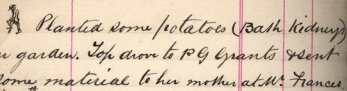 Planted some potatoes (Bath Kidneys)
garden. Top drove to P G Grants & sent
some material to her mother at Mr. Frances